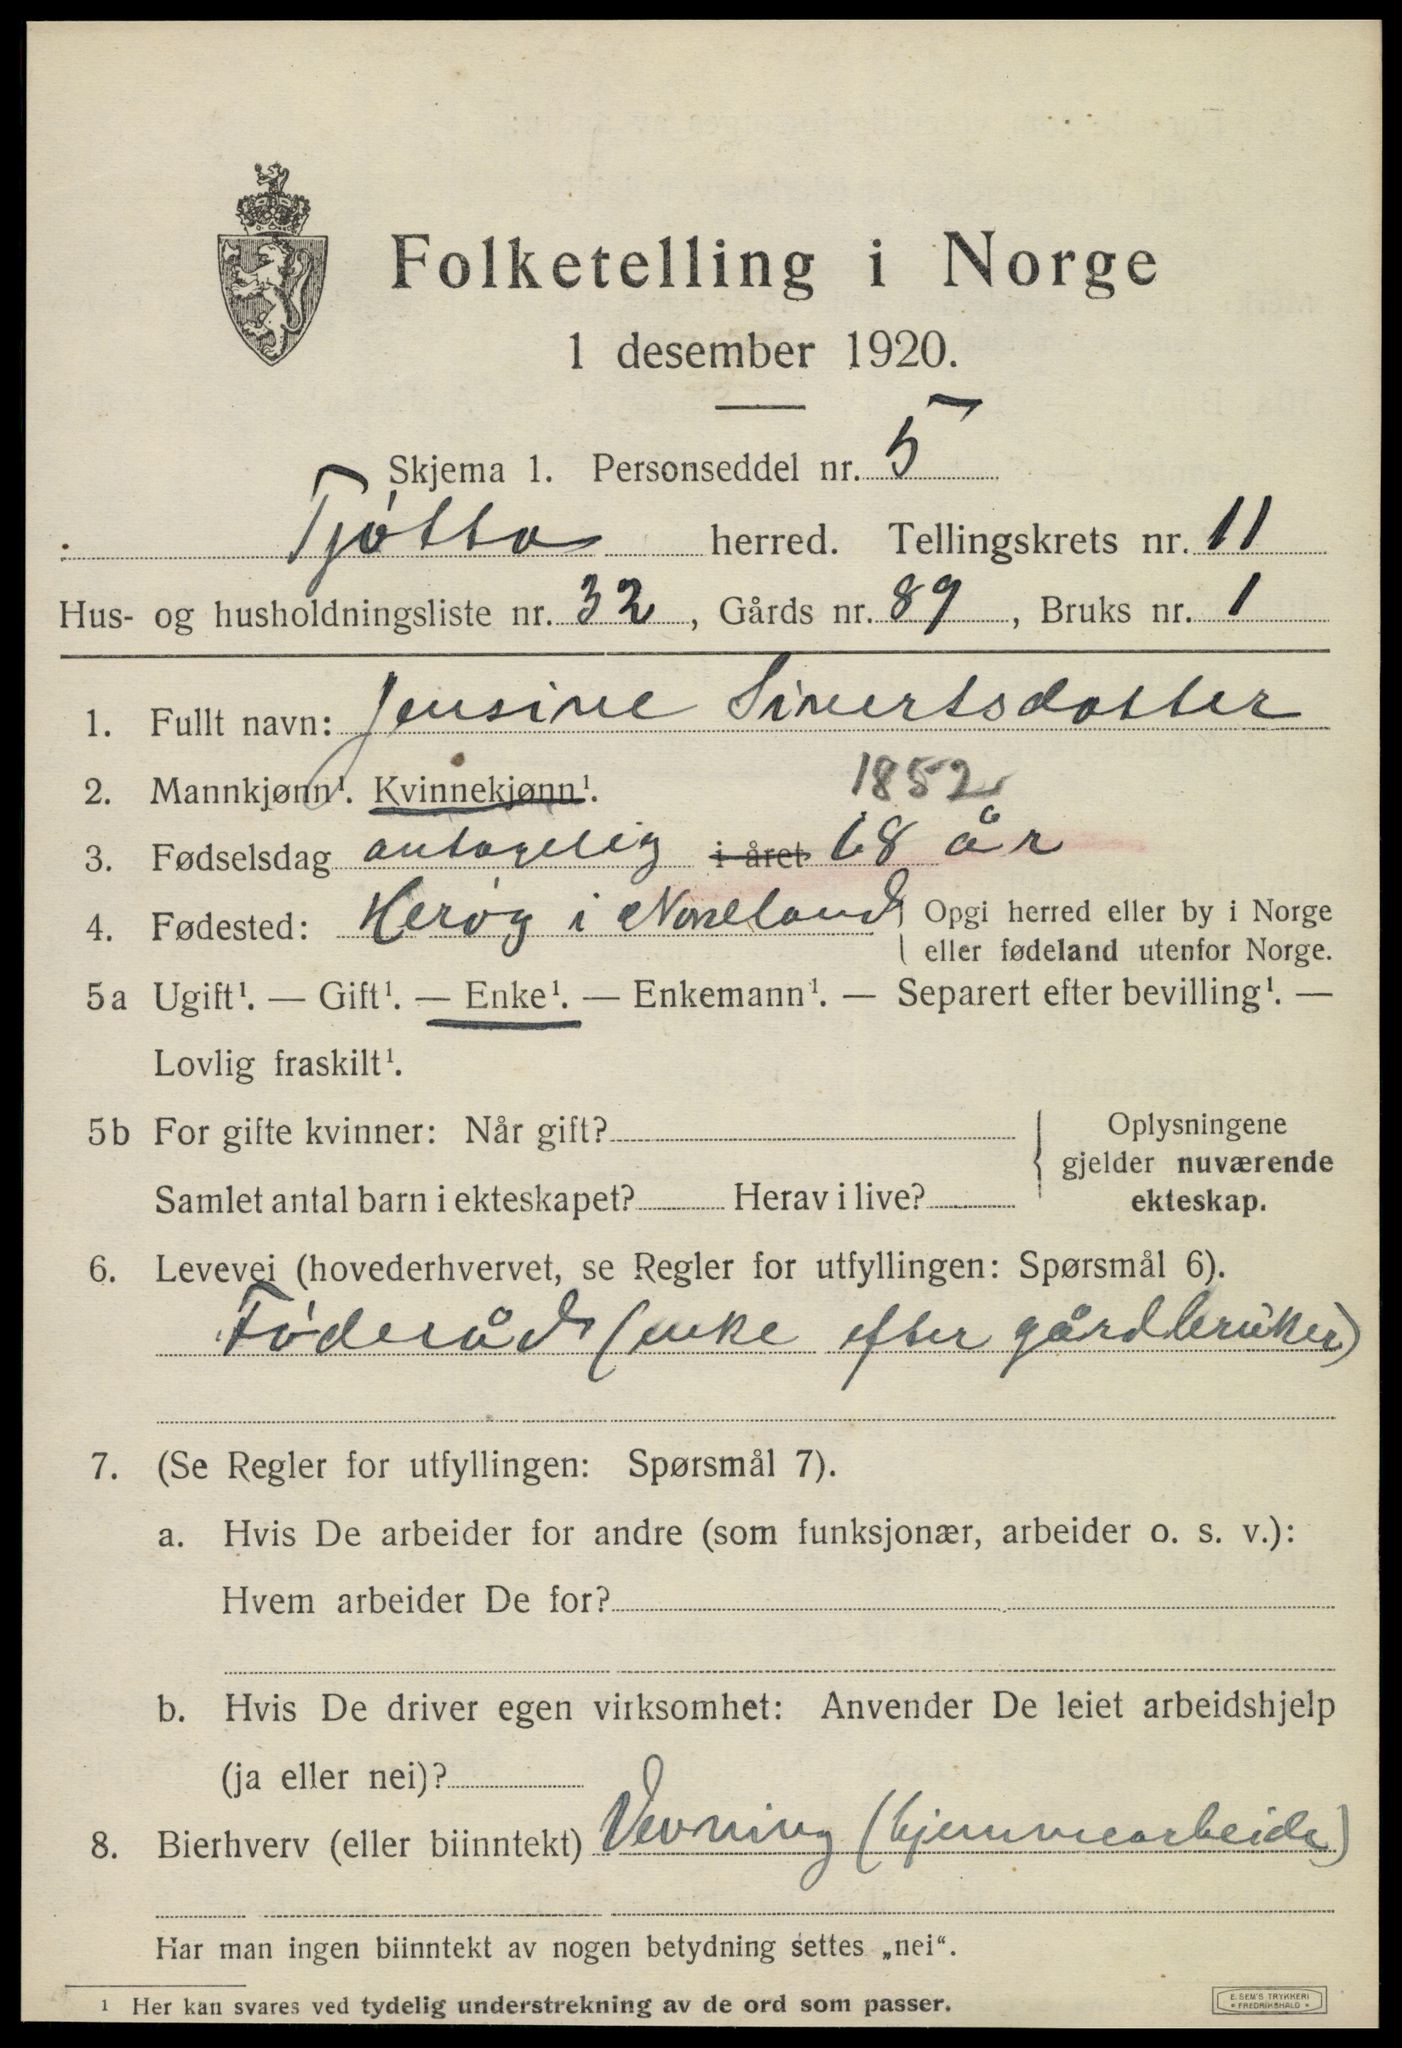 Folketelling i Norge
1 desember 1920.
Skjema 1. Personseddel nr. 5
Tjøtta herred. Tellingskrets nr. 11
Hus- og husholdningsliste nr. 32, Gårds nr. 89, Bruks nr. 1
1. Fullt navn: Jensine Sivertsdatter
2. Mannkjønn¹. Kvinnekjønn¹. 1852
3. Fødselsdag antagelig i året 68 år
4. Fødested: Herøy i Nordland { Opgi herred eller by i Norge
eller fødeland utenfor Norge.
5a Ugift¹. — Gift¹. — Enke¹. — Enkemann¹. — Separert efter bevilling¹. —
Lovlig fraskilt¹.
5b For gifte kvinner: Når gift?
Samlet antal barn i ekteskapet? Herav i live?
{ Oplysningene
gjelder nuværende
ekteskap.
6. Levevei (hovederhvervet, se Regler for utfyllingen: Spørsmål 6).
Føderåd (enke efter gårdbruker)
7. (Se Regler for utfyllingen: Spørsmål 7).
a. Hvis De arbeider for andre (som funksjonær, arbeider o. s. v.):
Hvem arbeider De for?
b. Hvis De driver egen virksomhet: Anvender De leiet arbeidshjelp
(ja eller nei)?
8. Bierhverv (eller biinntekt) Vevning (hjemmearbeide)
Har man ingen biinntekt av nogen betydning settes „nei“.
¹ Her kan svares ved tydelig understrekning av de ord som passer.
E. SEM'S TRYKKERI
• FREDRIKSHALD •